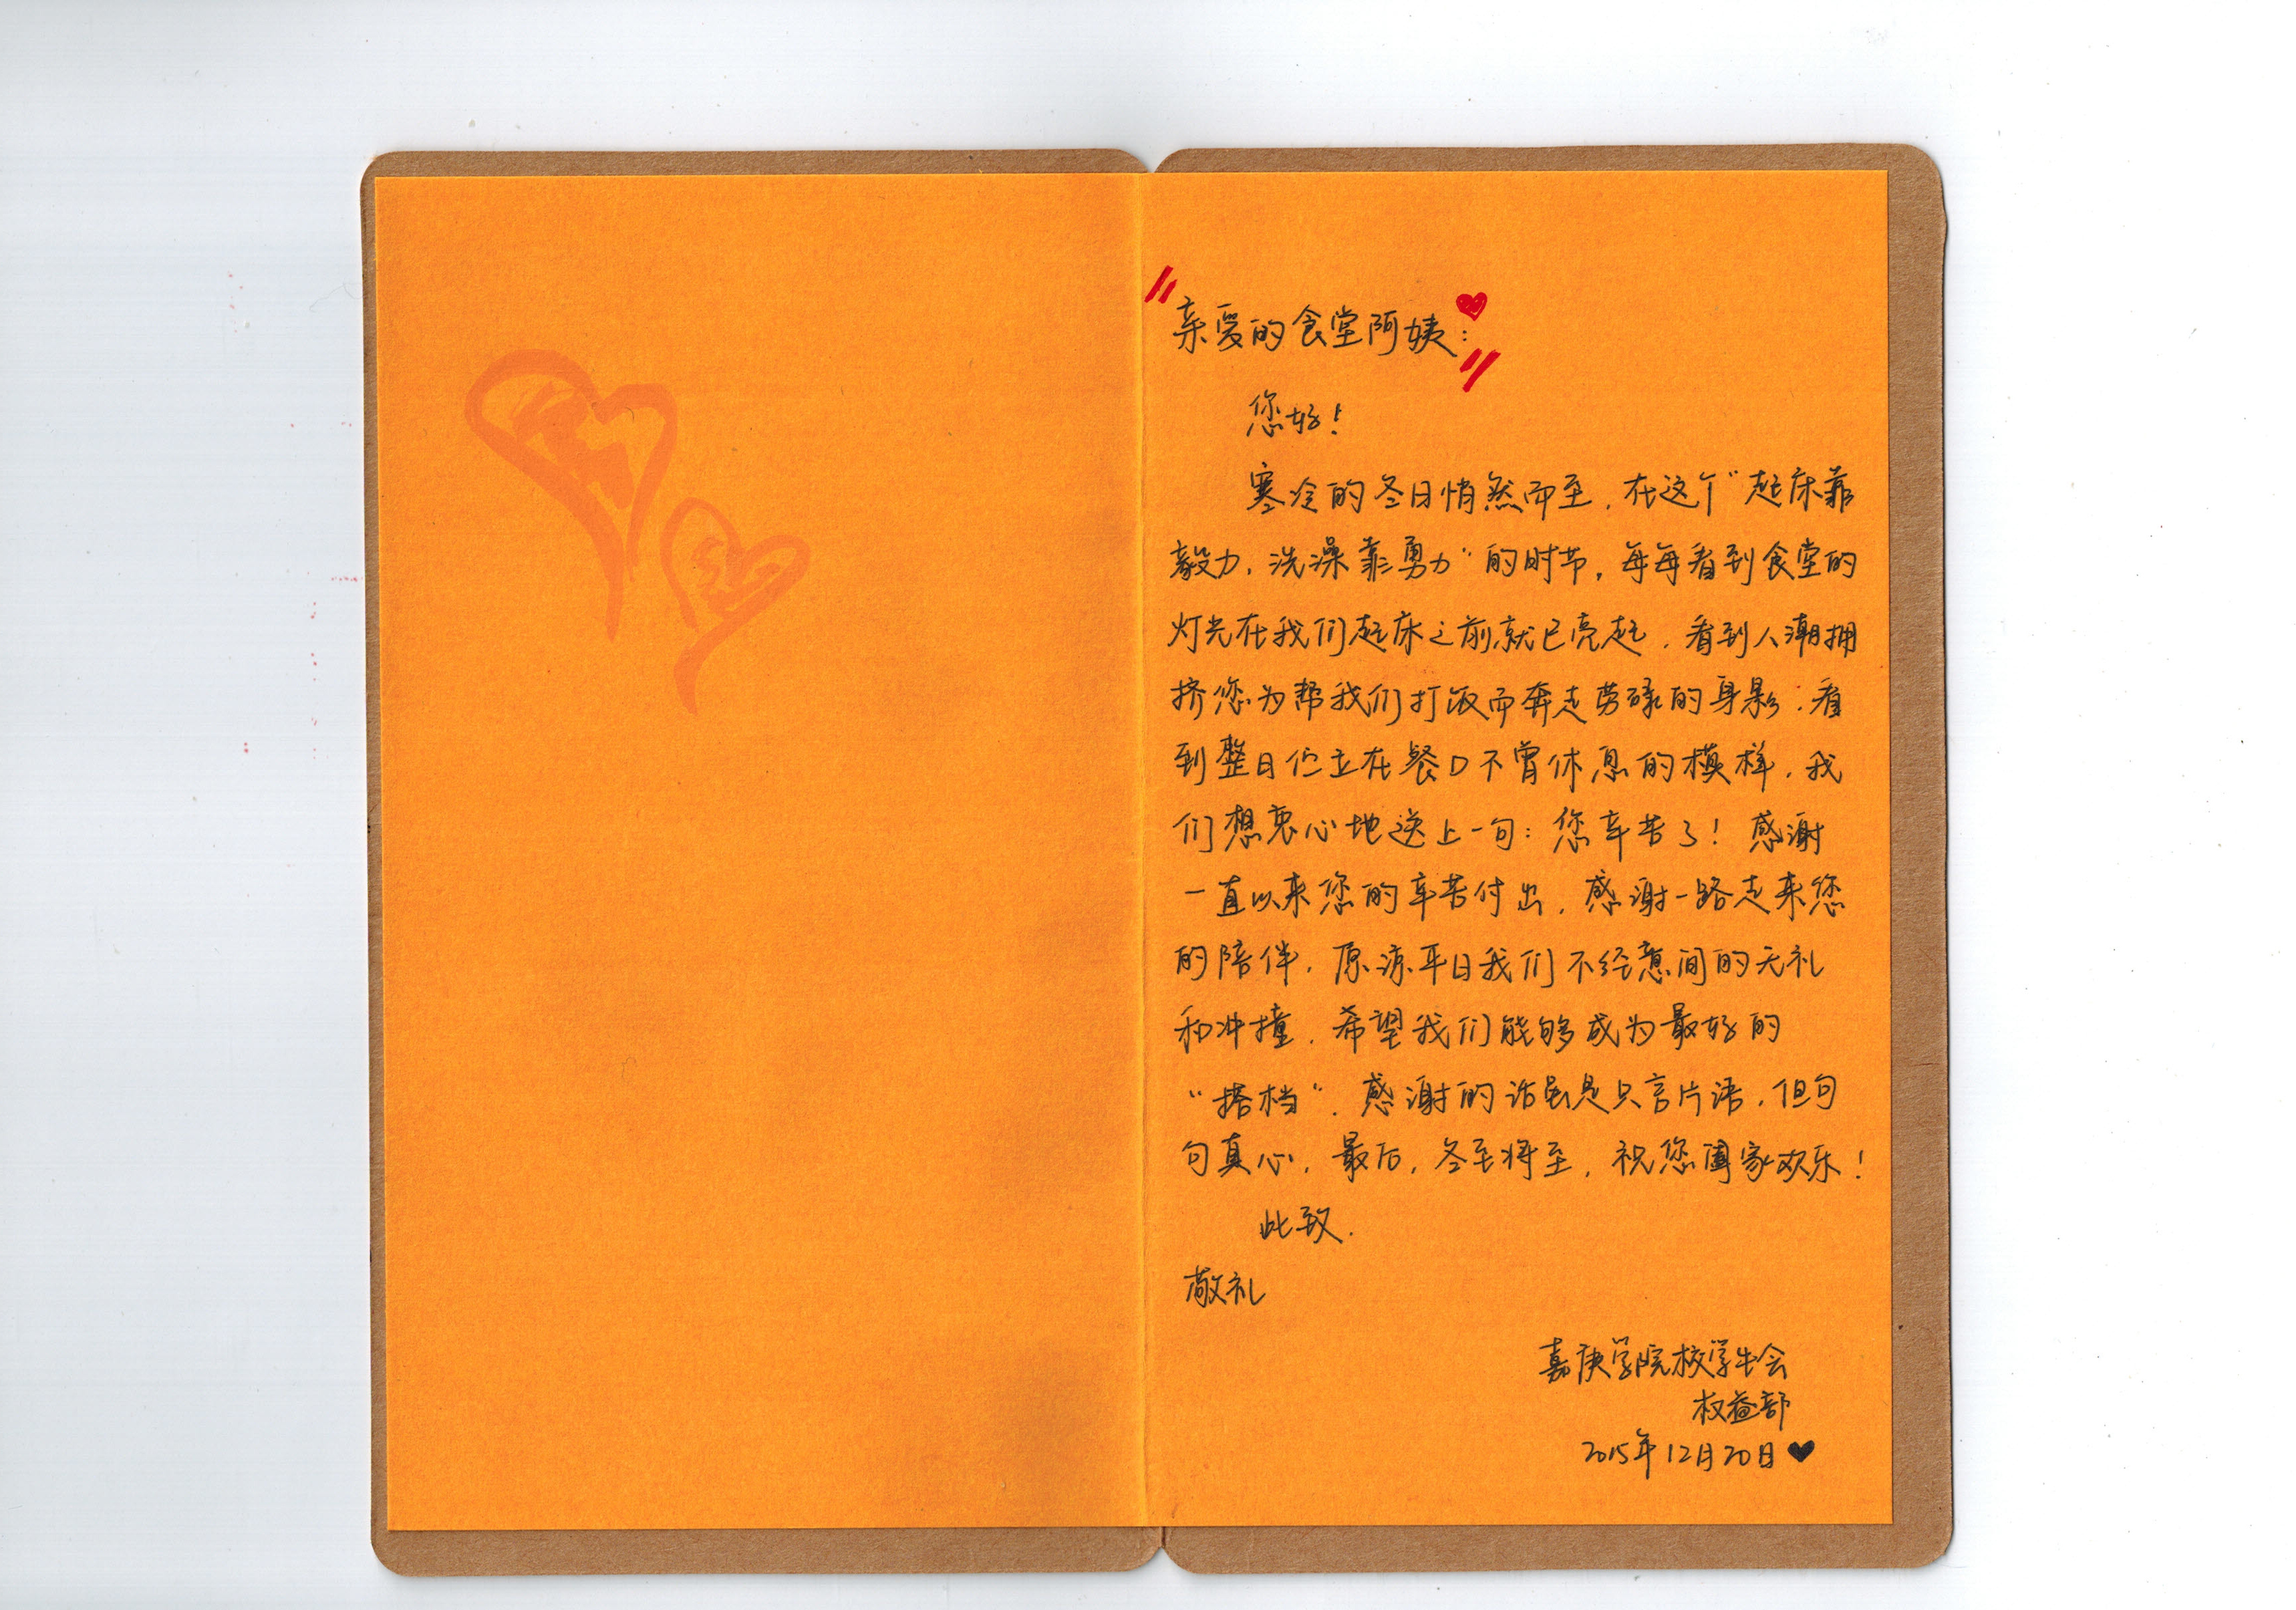 亲爱的食堂阿姨：
您好！
寒冷的冬日悄然而至，在这个“起床靠
毅力，洗澡靠勇力”的时节，每每看到食堂的
灯光在我们起床之前就已亮起，看到人潮拥
挤您为帮我们打饭而奔走劳碌的身影；看
到整日伫立在餐口不曾休息的模样，我
们想衷心地送上一句：您辛苦了！感谢
一直以来您的辛苦付出，感谢一路走来您
的陪伴，原谅平日我们不经意间的无礼
和冲撞，希望我们能够成为最好的
“搭档”，感谢的话虽是只言片语，但句
句真心，最后，冬至将至，祝您阖家欢乐！
此致．
敬礼
嘉庚学院校学生会
权益部
2015年12月20日